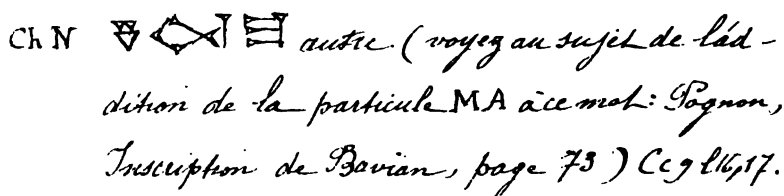 Ch N autre (voyez au sujet de l'ad-
dition de la particule MA à ce mot: Pognon,
Inscription de Bavian, page 73) Cc 9 l 16, 17.